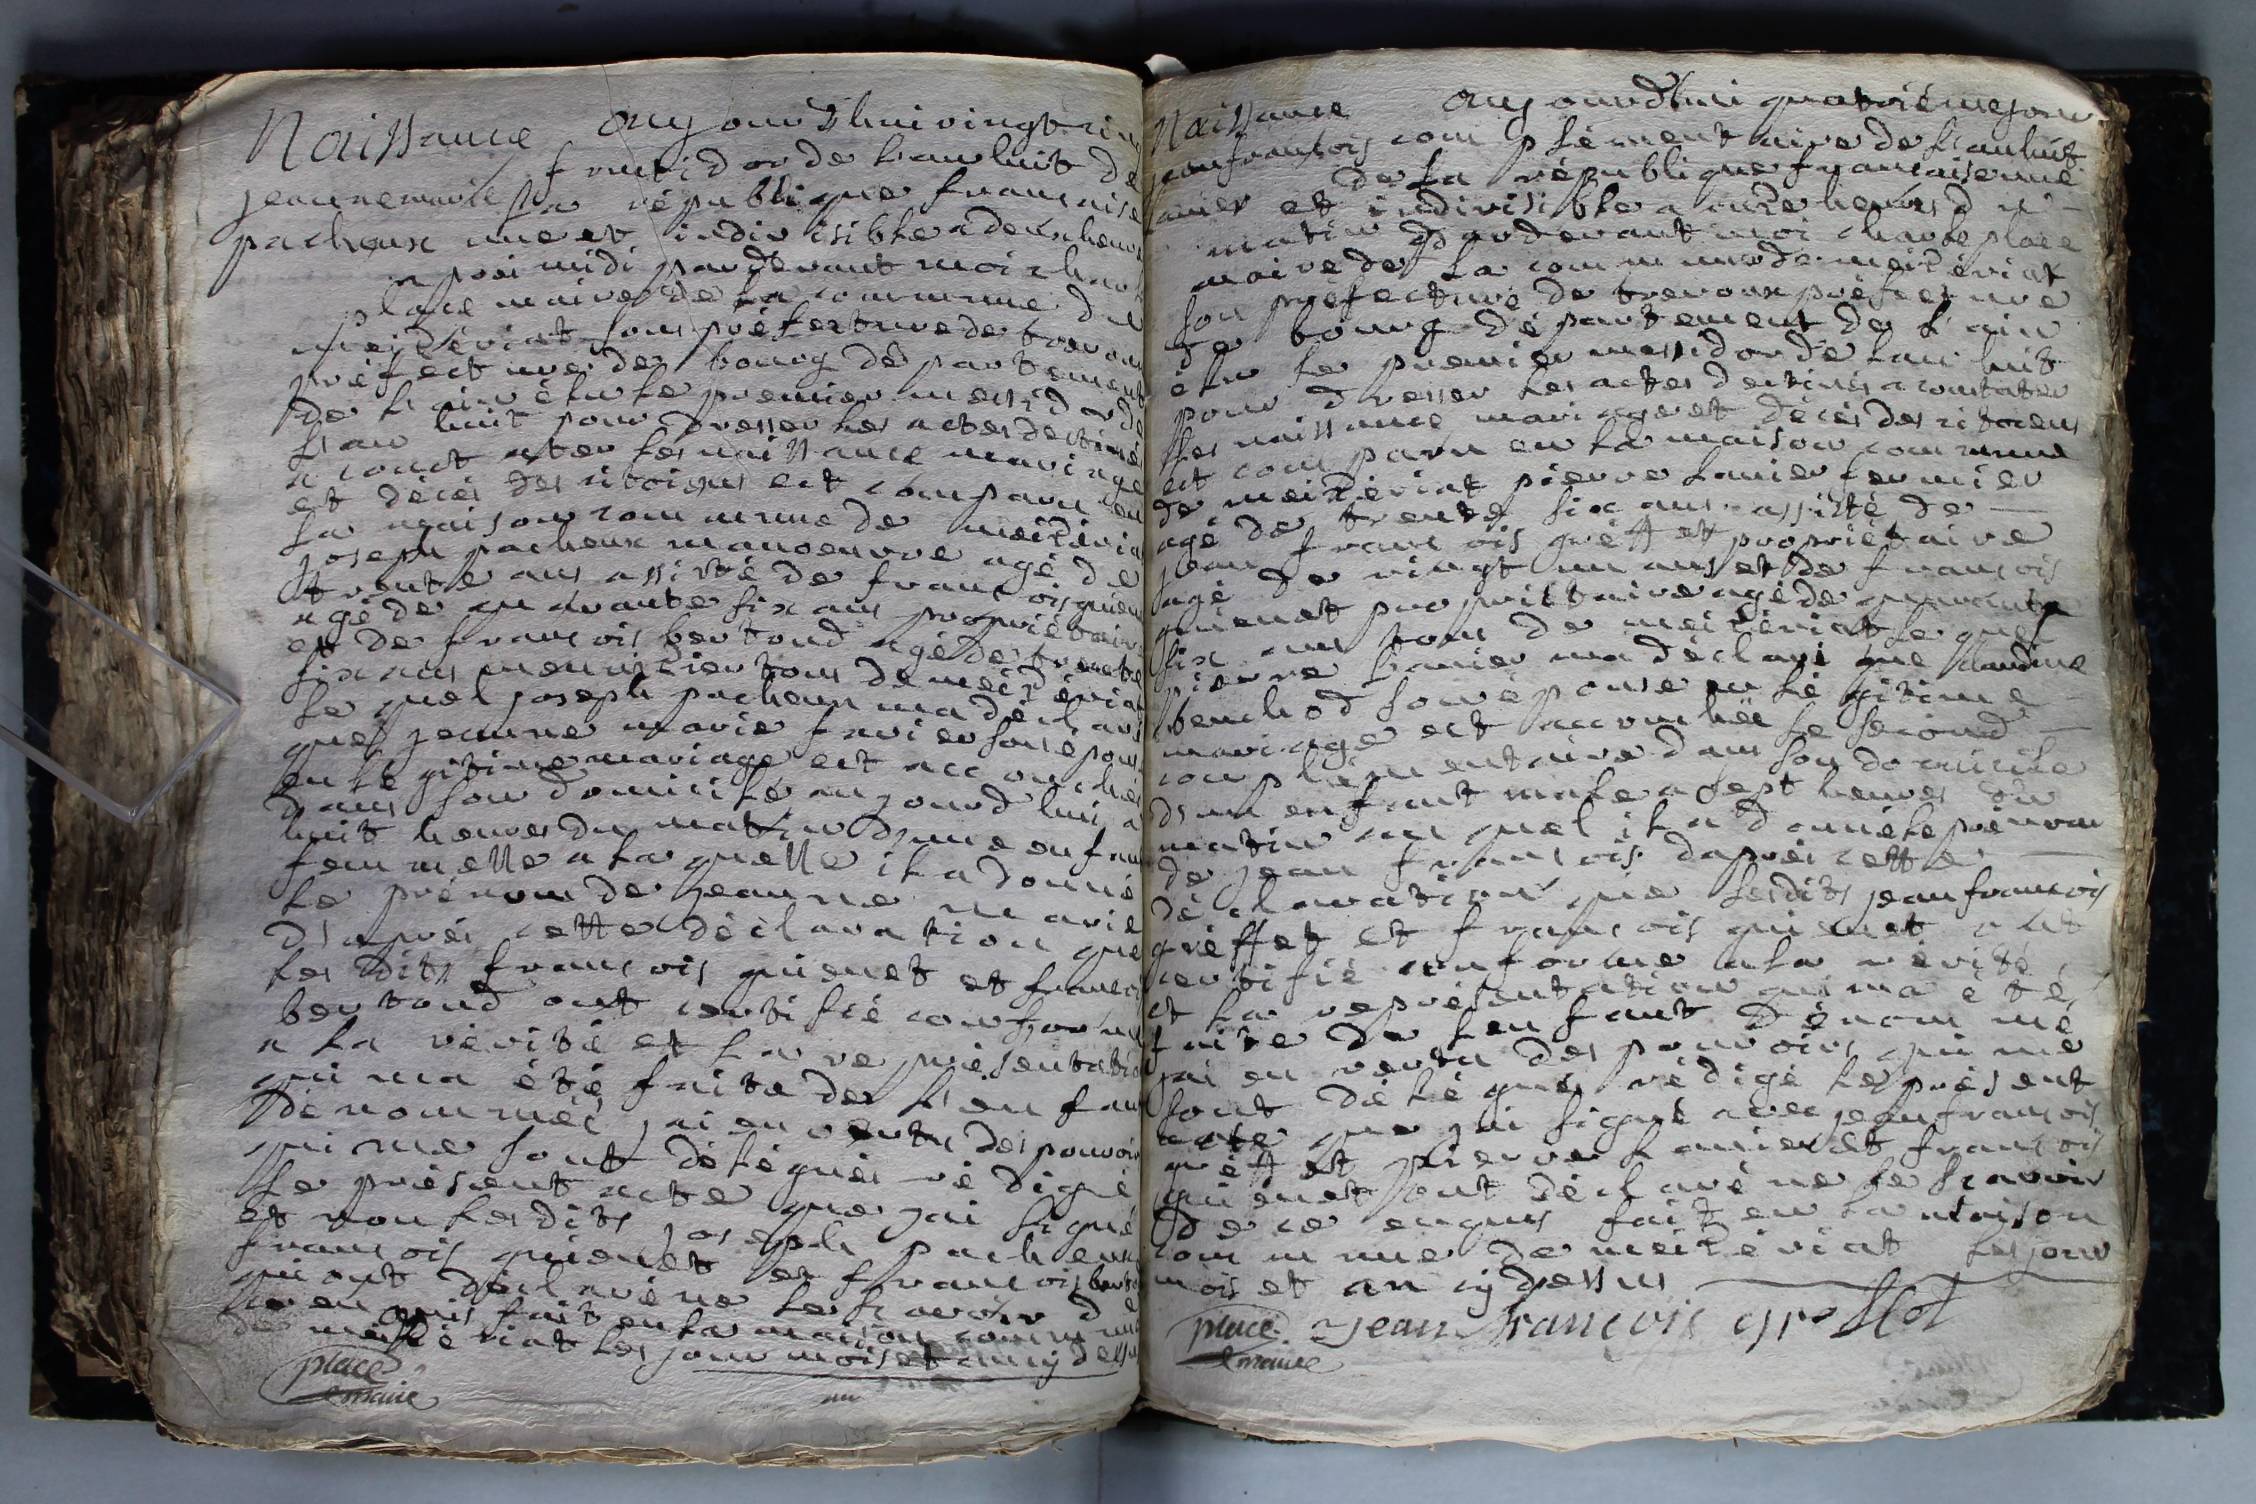 Naissance aujourdhui vingt cin
jeanne marie fructidor de l'an huit de
pacheux la république francaise
une et indivisible a deux heures
apréi midi pardevant moi charle
place maire de la commune de
meizériat sous préfecture de trevoux
préfecture de bourg département
de l'ain élu le premier messidor de
l'an huit pour dresser les actes destinés
a constater les naissance mariage
et décés des citoiens est comparu en
la maison commune de meizériat
joseph pacheux manoeuvre agé de
trente ans assisté de francois quienet
agé de quarante six ans propriétaire
et de francois bertoud agé de trente
six ans menuizier tous de meizériat
le quel joseph pacheux ma déclaré
que jeanne marie favier son épouse
en légitime mariage est accouchée
dans son domicile aujourd'hui a
huit heures du matin d'une enfan
femmelle a la quelle il a donné
le prénom de jeanne marie
d'aprei cette déclaration que
les dits francois quienet et francois
bertoud ont certifié conforme
a la vérité et la représentation
qui ma été faite de l'enfan
dénommée jai en vertu des pouvoir
qui me sont délégués rédigé
le présent acte que jai signé
et non les dits joseph pacheux
francois quienet et francois berto
qui ont déclaré ne le scavoir de
ce enquis fait en la maison commune
de meizériat les jour mois et an cy dessu
place
maire
Naissance aujourdhui quatriéme jour
jean françois complémentaire de l'an huit
lanier de la république francaise une
et indivisible a onze heures du
matin pardevant moi charle place
maire de la commune de meizériat
sou préfecture de trevoux préfecture
de bourg département de l'ain
élu le premier messidor de l'an huit
pour dresser les actes destinés a constater
les naissance mariage et décés des citoiens
est comparu en la maison commune
de meizériat pierre lanier fermier
agé de trente six ans assisté de
jean francois gréffet propriétaire
agé de vingt un ans et de francois
quienet propriétaire agé de quarante
six ans tous de meizériat le quel
pierre lanier ma déclaré que claudine
benchod son épouse en légitime
mariage est accouchée le second
complémentaire dans son domicile
d'un enfant male a sept heures du
matin au quel il a donné le prénom
de jean francois d'aprés cette
déclaration que lesdits jean francois
gréffet et francois quienet ont
certifié conforme a la vérité
et la représentation qui ma été
faite de l'enfant dénommé
jai en vertu des pouvoirs qui me
sont délégués rédigé le présent
acte que jai signé avec jean francois
gréffet pierre lanier et francois
quienet ont déclaré ne le scavoir
de ce enquis fait en la maison
commune de meizériat les jour
mois et an cy dessus
place jean françois greffet
maire